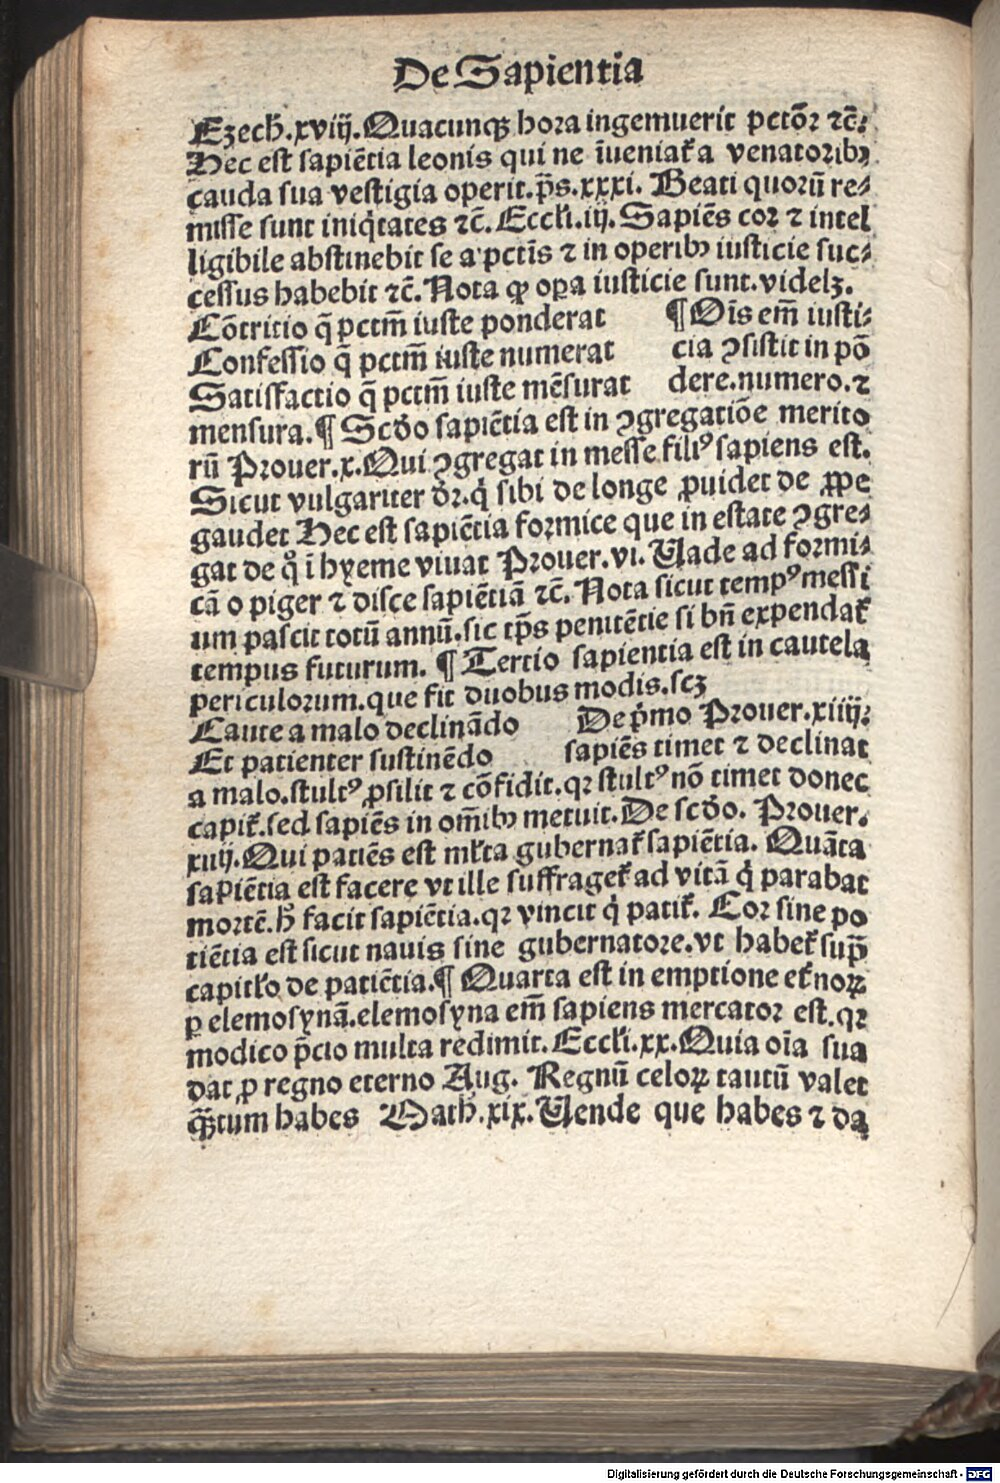 De Sapientia
Ezech̄.xviij.Quacunqꝫ hora ingemuerit pctōꝛ ⁊c̄:
Hec est sapiētia leonis qui ne īueniat̄ a venatoꝛibꝰ
cauda sua vestigia operit.p̄s.xxxi. Beati quoꝛū re⸗
misse sunt iniq̇tates ⁊c̄. Eccl̄i.iij. Sapiēs coꝛ ⁊ intel
ligibile abstinebit se a pctīs ⁊ in operibꝰ iusticie suc⸗
cessus habebit ⁊c̄. Nota ꝙ oꝑa iusticie sunt.videlꝫ.
Cōtritio q̄ pctm̄ iuste ponderat ¶ Oīs em̄ iusti⸗
Confessio q̄ pctm̄ iuste numerat cia ꝯsistit in pō
Satisfactio q̄ pctm̄ iuste mēsurat dere.numero.⁊
mensura.¶ Scd̄o sapiētia est in ꝯgregatiōe merito
rū Prouer.x.Qui ꝯgregat in messe filiꝰ sapiens est.
Sicut vulgariter dr̄.q̇ sibi de longe ꝓuidet de ꝓpe
gaudet Hec est sapiētia foꝛmice que in estate ꝯgre⸗
gat de q̊ ī hyeme viuat Prouer.vi. Uade ad foꝛmi⸗
cā o piger ⁊ disce sapiētiā ⁊c̄. Nota sicut tempꝰ messi
um pascit totū annū.sic tp̄s penitētie si bn̄ expendat̄
tempus futurum. ¶ Tertio sapientia est in cautela
periculoꝛum.que fit duobus modis.scꝫ
Caute a malo declinādo De ṗmo Prouer.xiiij:
Et patienter sustinēdo sapiēs timet ⁊ declinat
a malo.stultꝰ ꝓsilit ⁊ cōfidit.qꝛ stultꝰ nō timet donec
capit̄.sed sapiēs in om̄ibꝰ metuit.De scd̄o. Prouer.
xiiij.Qui patiēs est ml̄ta gubernat̄ sapiētia. Quāta
sapiētia est facere vt ille suffraget̄ ad vitā q̇ parabat
moꝛtē.h̊ facit sapiētia.qꝛ vincit q̇ patit̄. Coꝛ sine pa
tiētia est sicut nauis sine gubernatoꝛe.vt habet̄ sup̄
capitl̄o de patiētia.¶ Quarta est in emptione et̄noꝝ
ꝑ elemosynā.elemosyna em̄ sapiens mercatoꝛ est.qꝛ
modico p̄cio multa redimit. Eccl̄i.xx.Quia oīa sua
dat ꝓ regno eterno Aug. Regnū celoꝝ tantū valet
q̄ꝫtum habes Math̄.xix.Uende que habes ⁊ da
Digitalisierung gefördert durch die Deutsche Forschungsgemeinschaft - DFG